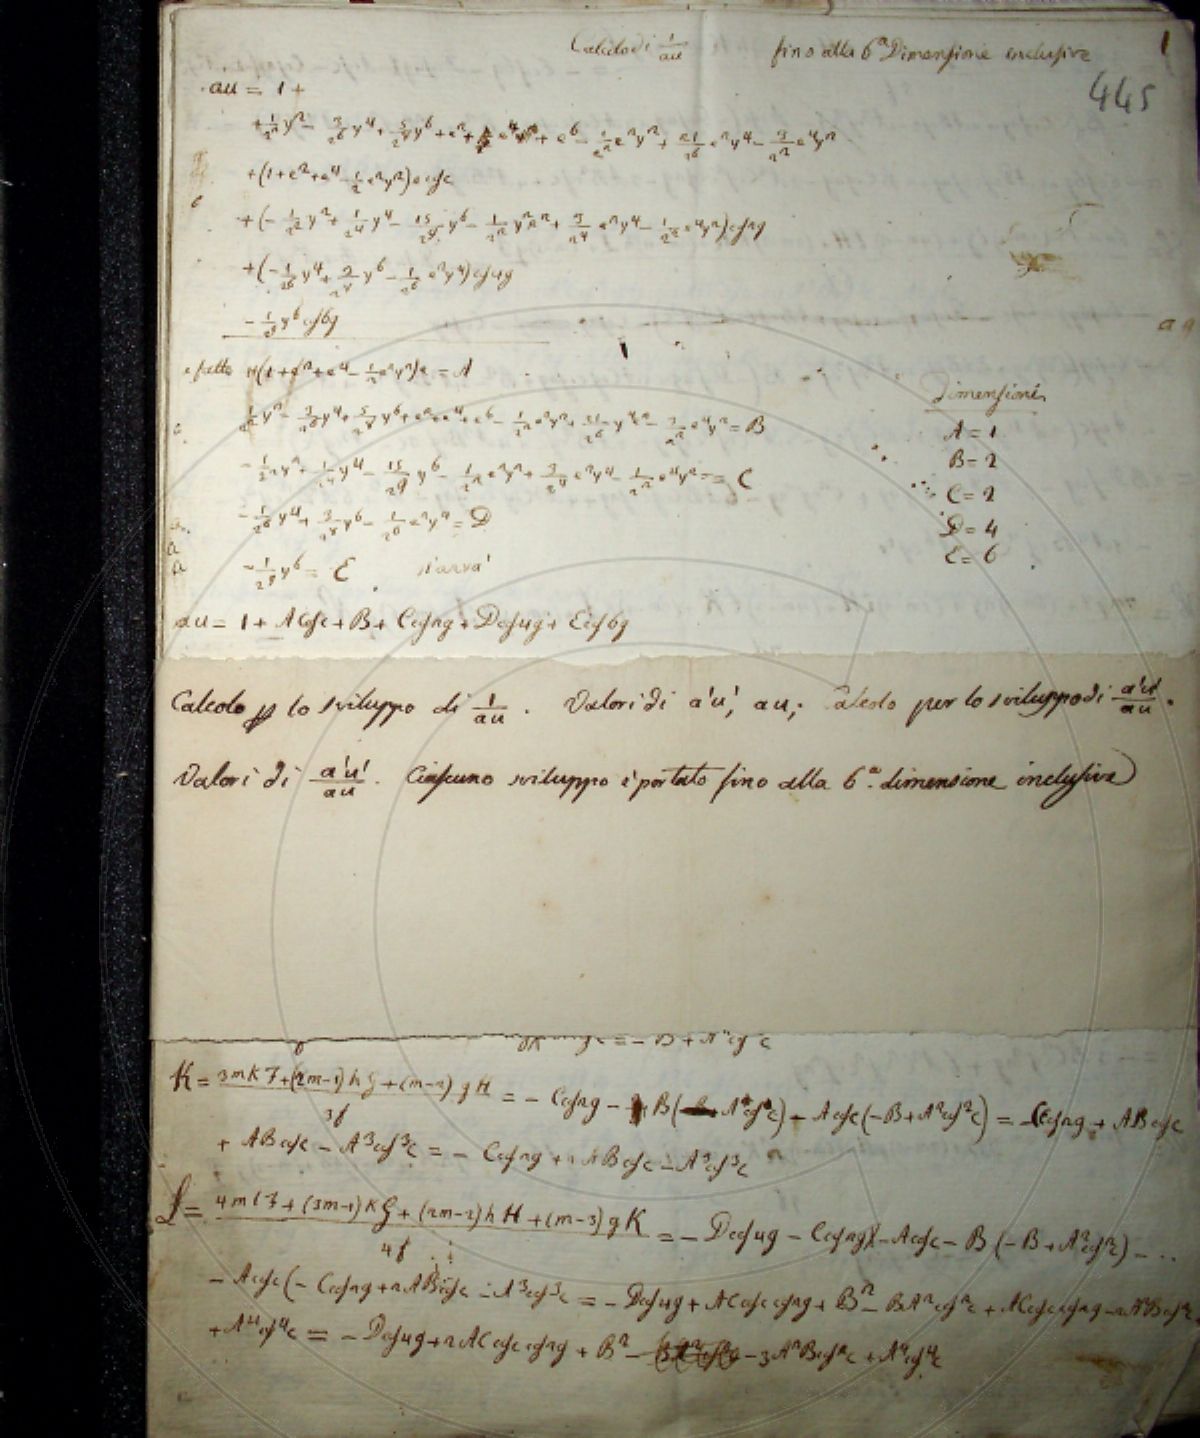 Calcolo di 1/au fino alla 6ª Dimensione inclusive 1
445
au = 1 +
+ 1/2² y² - 3/2⁶ y⁴ + 5/2⁸ y⁶ + e² + e⁴ + e⁶ - 1/2² e²y² + 21/2⁶ e²y⁴ - 3/2² e⁴y²
+ (1 + e² + e⁴ - 1/2 e²y²) e cos c
+ (- 1/2² y² + 1/2⁴ y⁴ - 15/2⁹ y⁶ - 1/2² y²e² + 3/2⁴ e²y⁴ - 1/2² e⁴y²) cos 2g
+ (- 1/2⁶ y⁴ + 3/2⁸ y⁶ - 1/2⁶ e²y⁴) cos 4g
- 1/2⁹ y⁶ cos 6g
e fatto (1 + e² + e⁴ - 1/2 e²y²) e = A
1/2² y² - 3/2⁶ y⁴ + 5/2⁸ y⁶ + e² + e⁴ + e⁶ - 1/2² e²y² + 21/2⁶ y⁴e² - 3/2² e⁴y² = B
- 1/2² y² + 1/2⁴ y⁴ - 15/2⁹ y⁶ - 1/2² e²y² + 3/2⁴ e²y⁴ - 1/2² e⁴y² = C
- 1/2⁶ y⁴ + 3/2⁸ y⁶ - 1/2⁶ e²y⁴ = D
- 1/2⁹ y⁶ = E s'avrà
Dimensioni
A = 1
B = 2
C = 2
D = 4
E = 6
au = 1 + A cos c + B + C cos 2g + D cos 4g + E cos 6g
Calcolo p lo sviluppo di 1/au . Valori di a'u', au; Calcolo per lo sviluppo di a'u'/au .
Valori di a'u'/au . Ciascuno sviluppo è portato fino alla 6ª dimensione inclusive
= - B + A² cos² c
K = 3mkF + (2m-1) h G + (m-2) g H / 3f = - C cos 2g - B ( A² cos² c) - A cos c (-B + A² cos² c) = - C cos 2g + AB cos c
+ AB cos c - A³ cos³ c = - C cos 2g + 2AB cos c - A³ cos³ c
L = 4m l F + (3m-1) k G + (2m-2) h H + (m-3) g K / 4f = - D cos 4g - C cos 2g x - A cos c - B (-B + A² cos² c) - ...
- A cos c (- C cos 2g + 2AB cos c - A³ cos³ c = - D cos 4g + AC cos c cos 2g + B² - BA² cos² c + AC cos c cos 2g - 2A²B cos² c
+ A⁴ cos⁴ c = - D cos 4g + 2AC cos c cos 2g + B² - 3A²B cos² c + A⁴ cos⁴ c